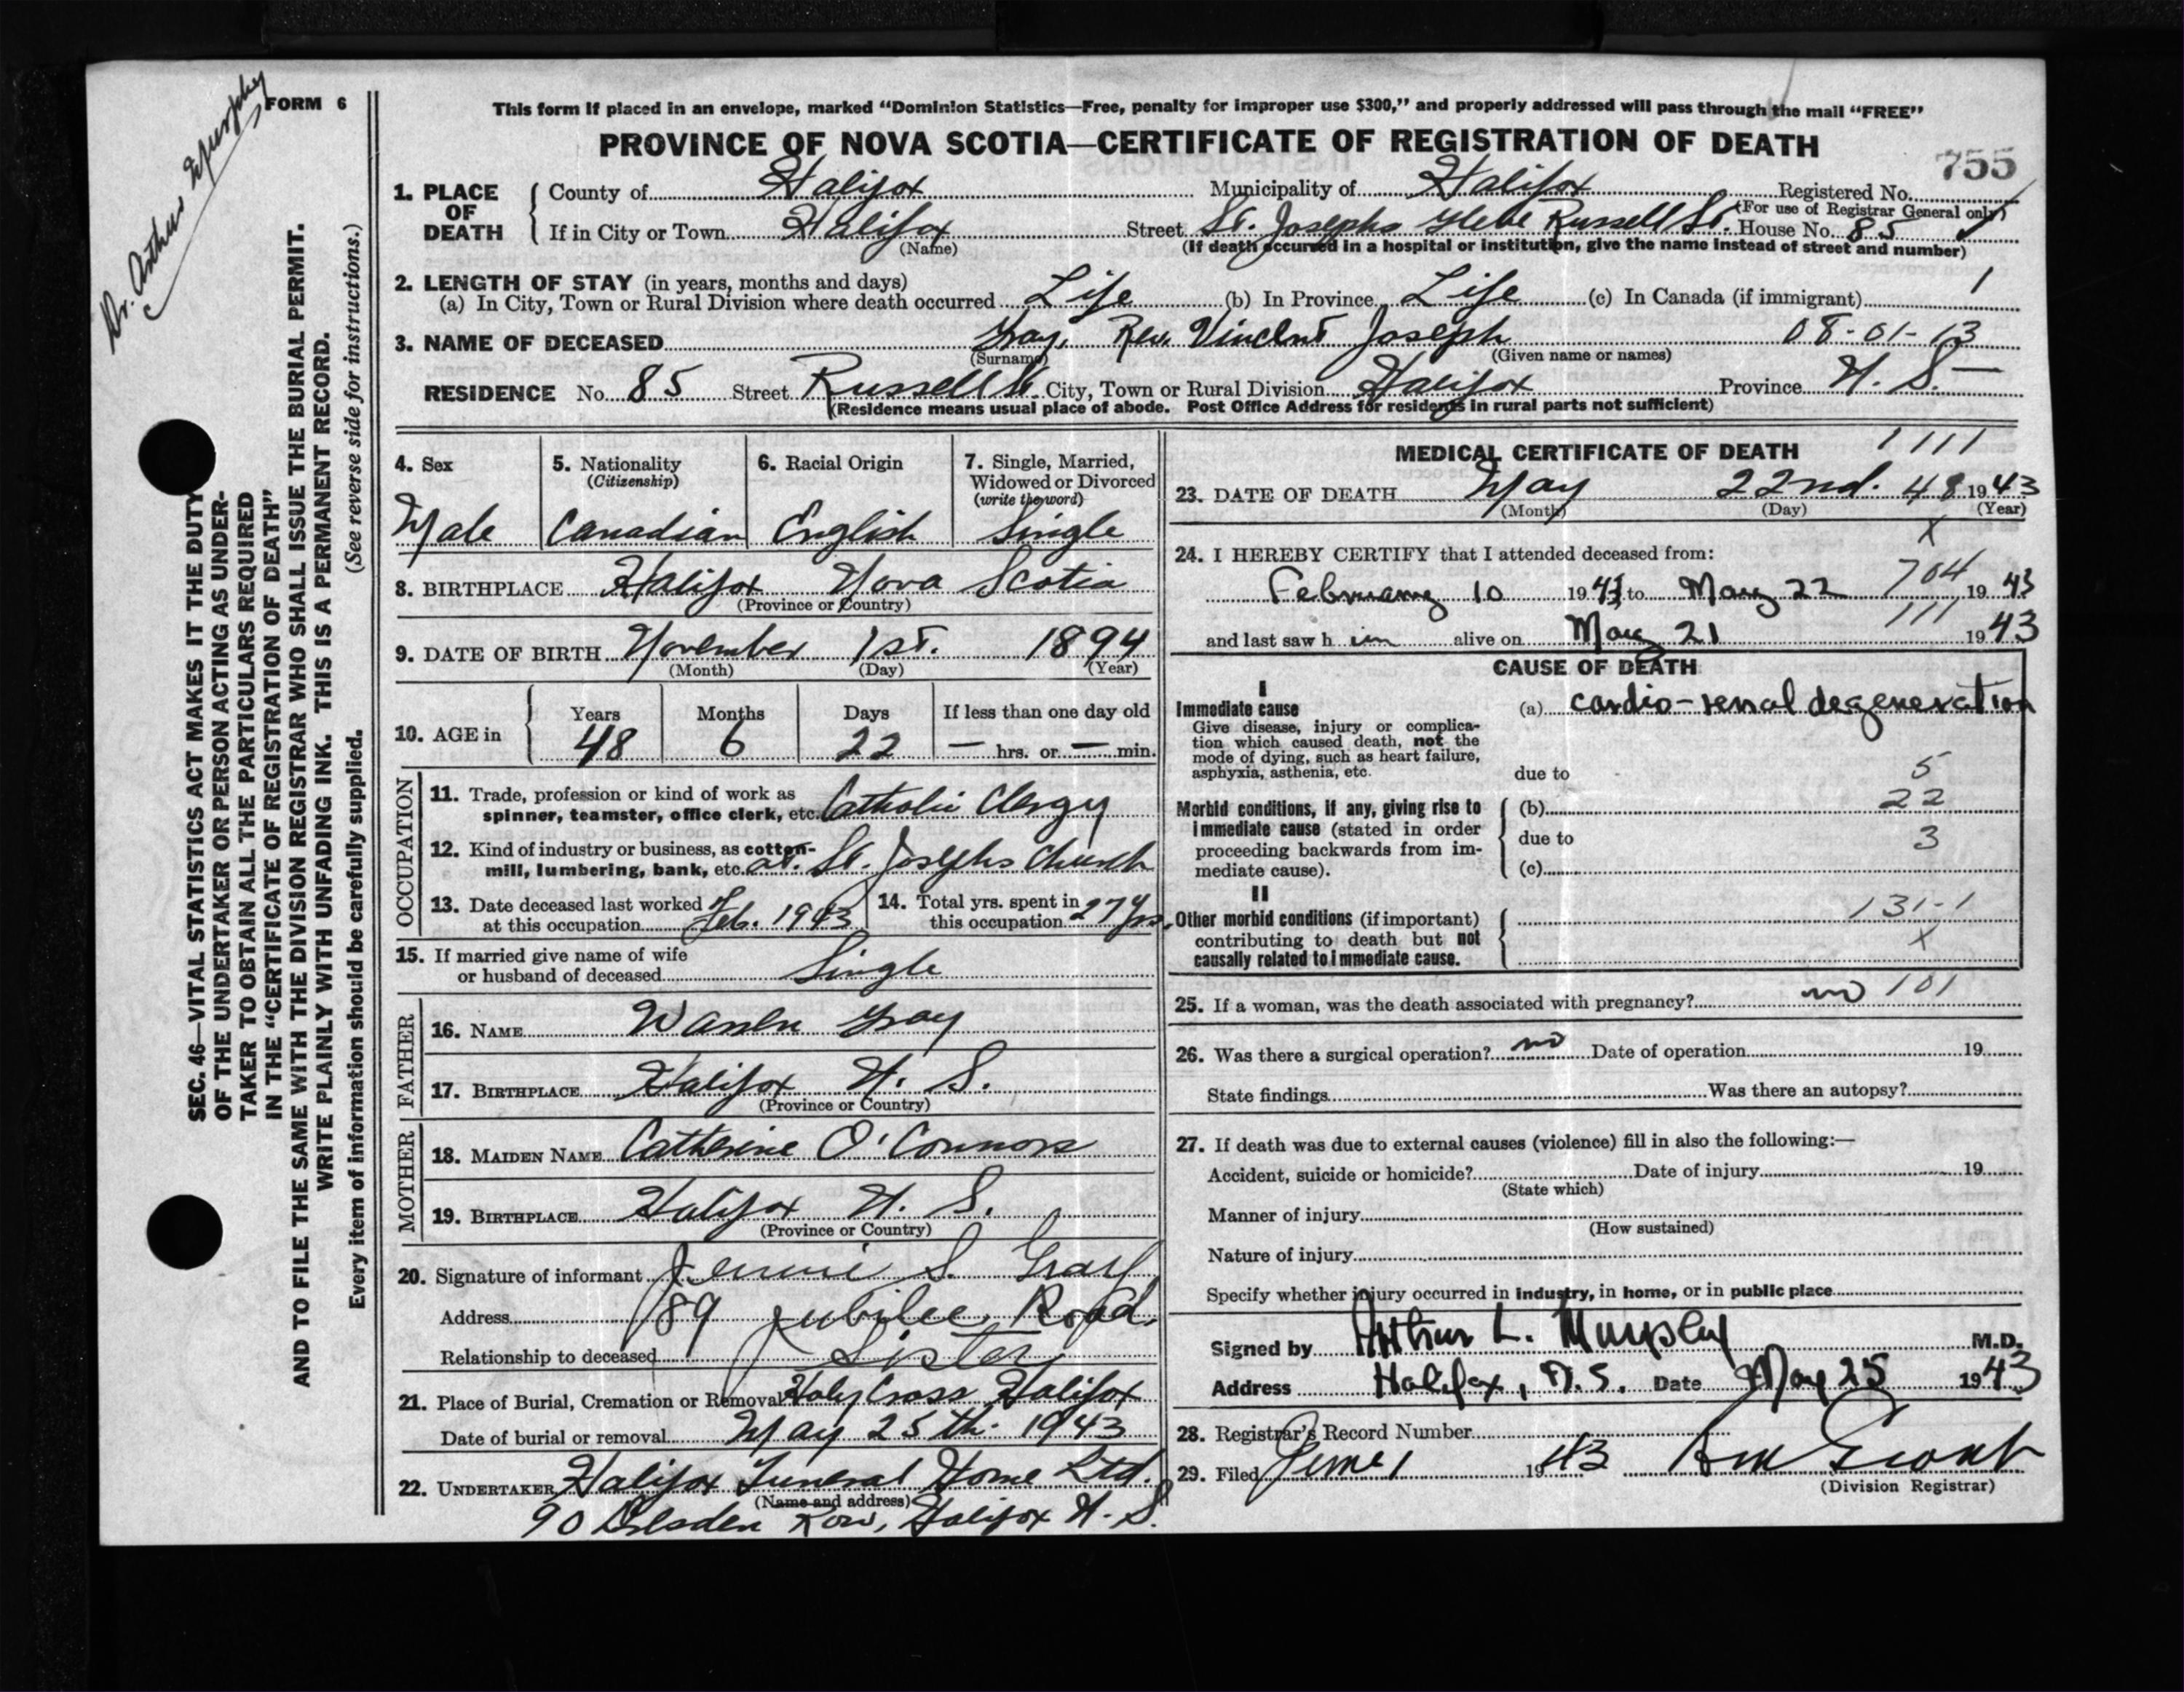 Dr. Arthur Murphy
FORM 6
SEC. 46—VITAL STATISTICS ACT MAKES IT THE DUTY
OF THE UNDERTAKER OR PERSON ACTING AS UNDER-
TAKER TO OBTAIN ALL THE PARTICULARS REQUIRED
IN THE "CERTIFICATE OF REGISTRATION OF DEATH"
AND TO FILE THE SAME WITH THE DIVISION REGISTRAR WHO SHALL ISSUE THE BURIAL PERMIT.
WRITE PLAINLY WITH UNFADING INK. THIS IS A PERMANENT RECORD.
Every item of information should be carefully supplied. (See reverse side for instructions.)
This form if placed in an envelope, marked "Dominion Statistics—Free, penalty for improper use $300," and properly addressed will pass through the mail "FREE"
PROVINCE OF NOVA SCOTIA—CERTIFICATE OF REGISTRATION OF DEATH
755
1. PLACE OF DEATH County of Halifax Municipality of Halifax Registered No.
(For use of Registrar General only)
If in City or Town Halifax Street St. Josephs Glebe Russell St. House No. 85
(Name) (If death occurred in a hospital or institution, give the name instead of street and number)
2. LENGTH OF STAY (in years, months and days)
(a) In City, Town or Rural Division where death occurred Life (b) In Province Life (c) In Canada (if immigrant) 1
3. NAME OF DECEASED Gray, Rev. Vincent Joseph 08-01-13
(Surname) (Given name or names)
RESIDENCE No. 85 Street Russell St. City, Town or Rural Division Halifax Province N. S. —
(Residence means usual place of abode. Post Office Address for residents in rural parts not sufficient)
4. Sex 5. Nationality 6. Racial Origin 7. Single, Married,
(Citizenship) Widowed or Divorced
(write the word)
Male Canadian English Single
8. BIRTHPLACE Halifax Nova Scotia
(Province or Country)
9. DATE OF BIRTH November 1st. 1894
(Month) (Day) (Year)
10. AGE in Years Months Days If less than one day old
48 6 22 — hrs. or — min.
OCCUPATION
11. Trade, profession or kind of work as
spinner, teamster, office clerk, etc. Catholic Clergy
12. Kind of industry or business, as cotton-
mill, lumbering, bank, etc. at St. Josephs Church
13. Date deceased last worked
at this occupation Feb. 1943
14. Total yrs. spent in
this occupation 27 yrs.
15. If married give name of wife
or husband of deceased Single
FATHER
16. NAME Warren Gray
17. BIRTHPLACE Halifax N. S.
(Province or Country)
MOTHER
18. MAIDEN NAME Catherine O'Connors
19. BIRTHPLACE Halifax N. S.
(Province or Country)
20. Signature of informant Jennie S. Gray
Address 189 Jubilee Road.
Relationship to deceased Sister
21. Place of Burial, Cremation or Removal Holy Cross Halifax
Date of burial or removal May 25th. 1943
22. UNDERTAKER Halifax Funeral Home Ltd.
(Name and address)
90 Dresden Row, Halifax N. S.
MEDICAL CERTIFICATE OF DEATH 1111
23. DATE OF DEATH May 22nd. 48 1943
(Month) (Day) (Year)
X
24. I HEREBY CERTIFY that I attended deceased from:
704
February 10 1943 to May 22 1943
111
and last saw h im alive on May 21 1943
CAUSE OF DEATH
I
Immediate cause (a) cardio-renal degeneration
Give disease, injury or complica-
tion which caused death, not the
mode of dying, such as heart failure,
asphyxia, asthenia, etc. due to 5
Morbid conditions, if any, giving rise to (b) 22
immediate cause (stated in order
proceeding backwards from im- due to 3
mediate cause). (c)
II
Other morbid conditions (if important) 131-1
contributing to death but not X
causally related to immediate cause.
25. If a woman, was the death associated with pregnancy? no 101
26. Was there a surgical operation? no Date of operation 19
State findings Was there an autopsy?
27. If death was due to external causes (violence) fill in also the following:—
Accident, suicide or homicide? Date of injury 19
(State which)
Manner of injury
(How sustained)
Nature of injury
Specify whether injury occurred in industry, in home, or in public place
Signed by Arthur L. Murphy M.D.
Address Halifax, N.S. Date May 25 1943
28. Registrar's Record Number
29. Filed June 1 1943
(Division Registrar)